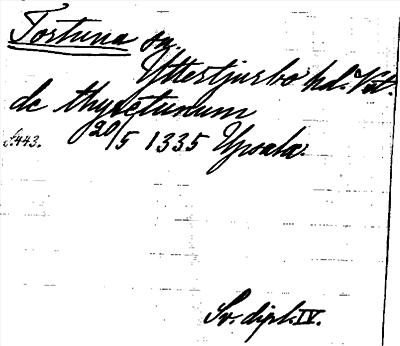 Tortuna sn.
Yttertjurbo hd. Vm.
de thyrctunum
s. 443. 20/5 1335 Upsala.
Sv. dipl. IV.